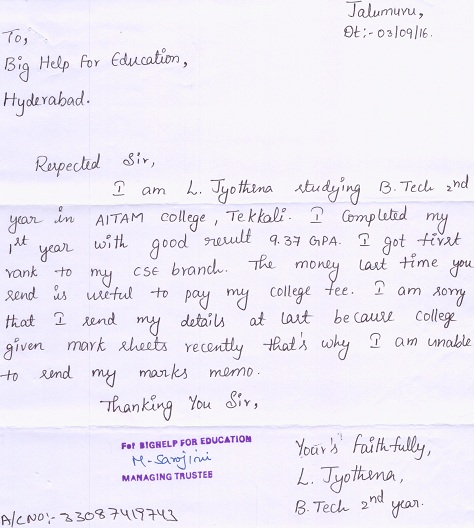 Jalumuru,
Dt:- 03/09/16.
To,
Big Help For Education,
Hyderabad.
Respected Sir,
I am L. Jyothena studying B.Tech 2nd
year in AITAM college, Tekkali. I completed my
1st year with good result 9.37 GPA. I got first
rank to my CSE branch. The money last time you
send is useful to pay my college fee. I am sorry
that I send my details at last because college
given mark sheets recently that's why I am unable
to send my marks memo.
Thanking You Sir,
For BIGHELP FOR EDUCATION
M. Sarojini
MANAGING TRUSTEE
Your's Faithfully,
L. Jyothena,
B.Tech 2nd year.
A/C NO:- 33087419743